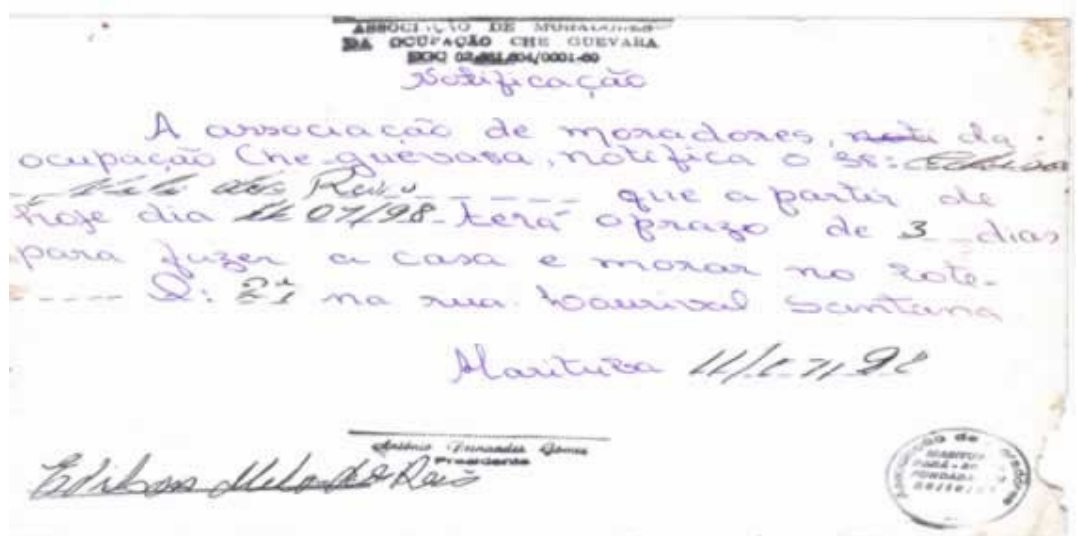 ASSOCIAÇÃO DE MORADORES
DA OCUPAÇÃO CHE GUEVARA
Notificação
A associação de moradores, da
ocupação Che-guevara, notifica o sr: Edilson
Melo dos Reis que a partir de
hoje dia 11 07/98 terá o prazo de 3 dias
para fuzer a casa e morar no lote
Q: 21 na rua Lourival Santana
Marituba 11/07/98
Antônio Fernandes Gomes
Presidente
Edilson Melo do Reis
Associação de Moradores
MARITUBA
PARÁ
FUNDADA